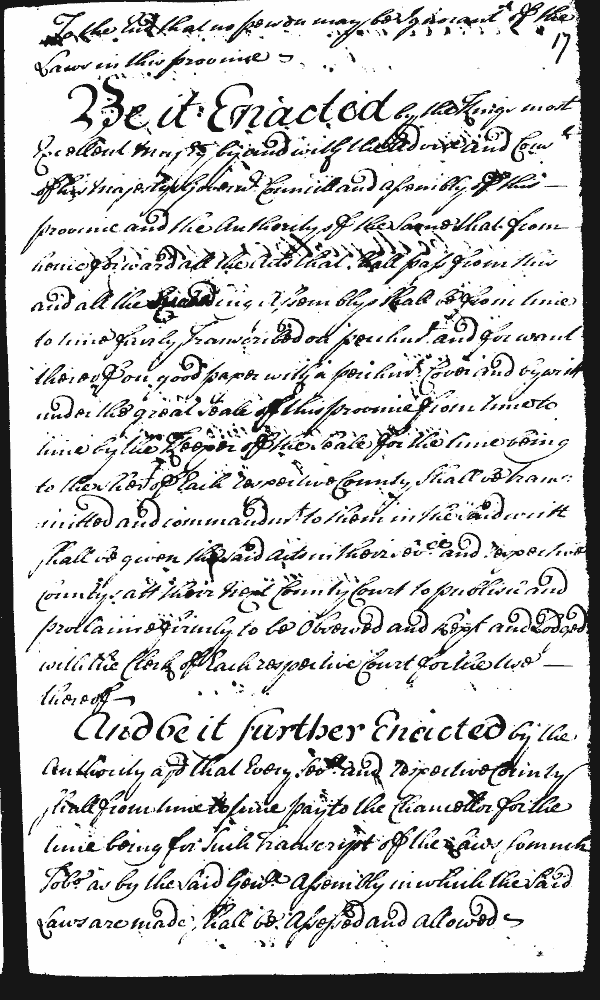 To the End that no person may be Ignorant of the
17
Laws in this province
Be it Enacted by the Kings most
Excellent Majty by and with the advice and Con
of his Majestys Govern.r Councill and assembly of this
province and the Authority of the same that from
henceforward all the Acts that shall pass from this
and all the Succeeding Assemblys shall be from time
to time fairly Transcribed on parchmt. and for want
thereof on good paper with a parchmt. Cover and by writt
under the great seale of this province from time to
time by the Keeper of the seale for the time being
to the sher. of Each respective County shall be trans=
mitted and commandmt. to them in the said writt
shall be given the said acts in their sev.ll and respective
Countys att their next County Court to publish and
proclaime firmly to be Observed and kept and Lodged
with the Clerk of Each respective Court for the use
thereof
And be it further Enacted by the
Authority afd that Every sev.ll and respective County
shall from time to time pay to the Chancellor for the
time being for such Transcript of the Laws so much
Tobo. as by the said Gen.ll Assembly in which the said
Laws are made, shall be Assessed and allowed